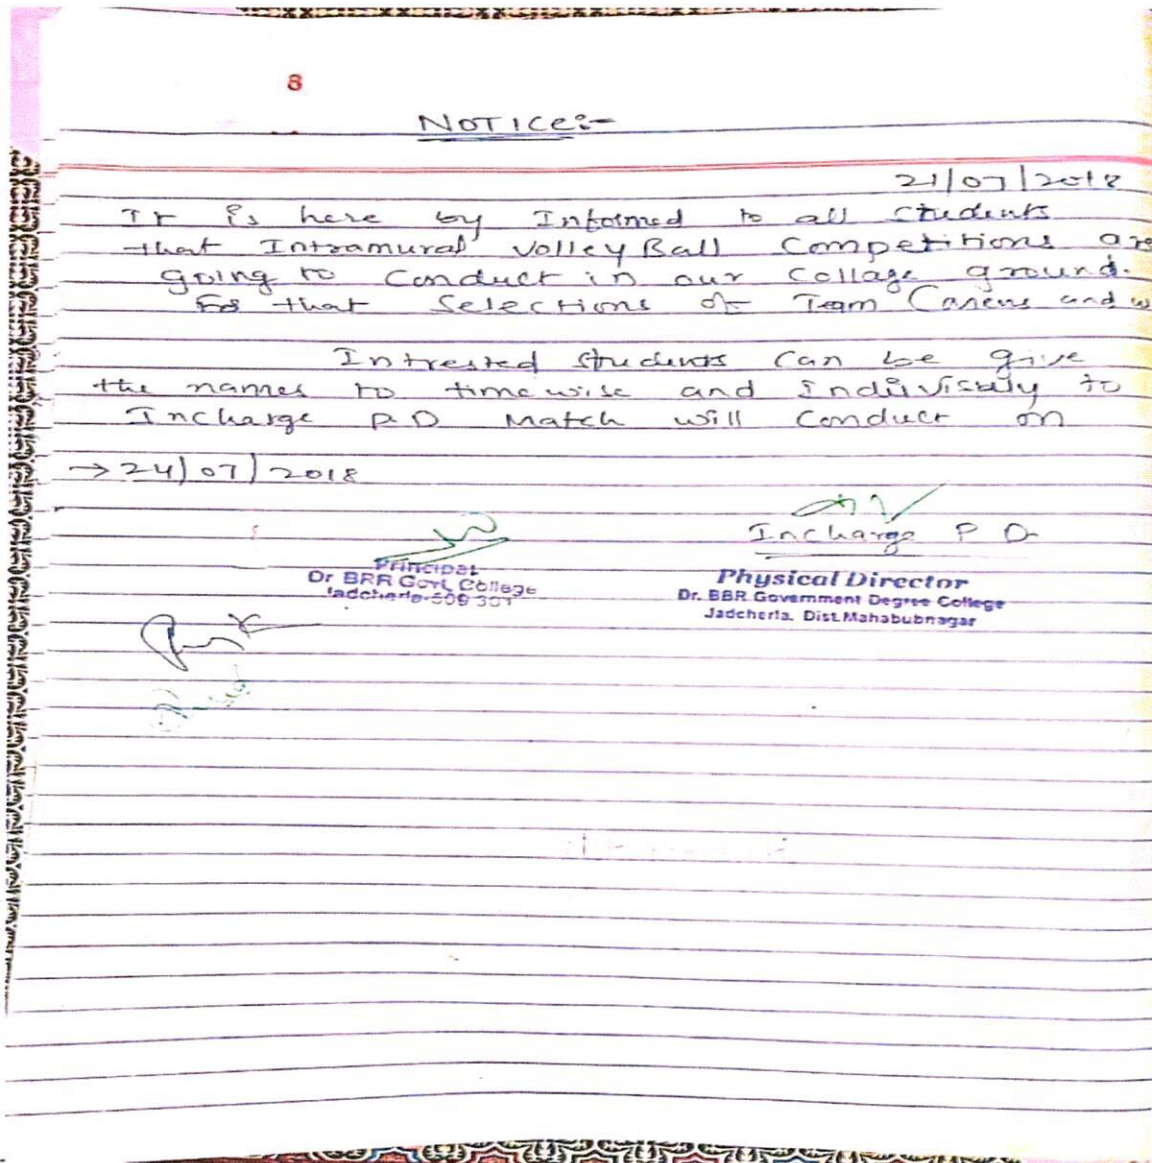 8
NOTICE:-
21/07/2018
It is here by Informed to all Students
that Intramural Volley Ball Competitions are
going to Conduct in our Collage ground.
For that Selections of Team and
Intrested Students Can be give
the names to timewise and to
Incharge P.D Match will Conduct on
→ 24/07/2018
Incharge P D
Principal
Dr BRR Govt. College
Jadcherla-509 301
Physical Director
Dr. BBR Government Degree College
Jadcherla. Dist.Mahabubnagar